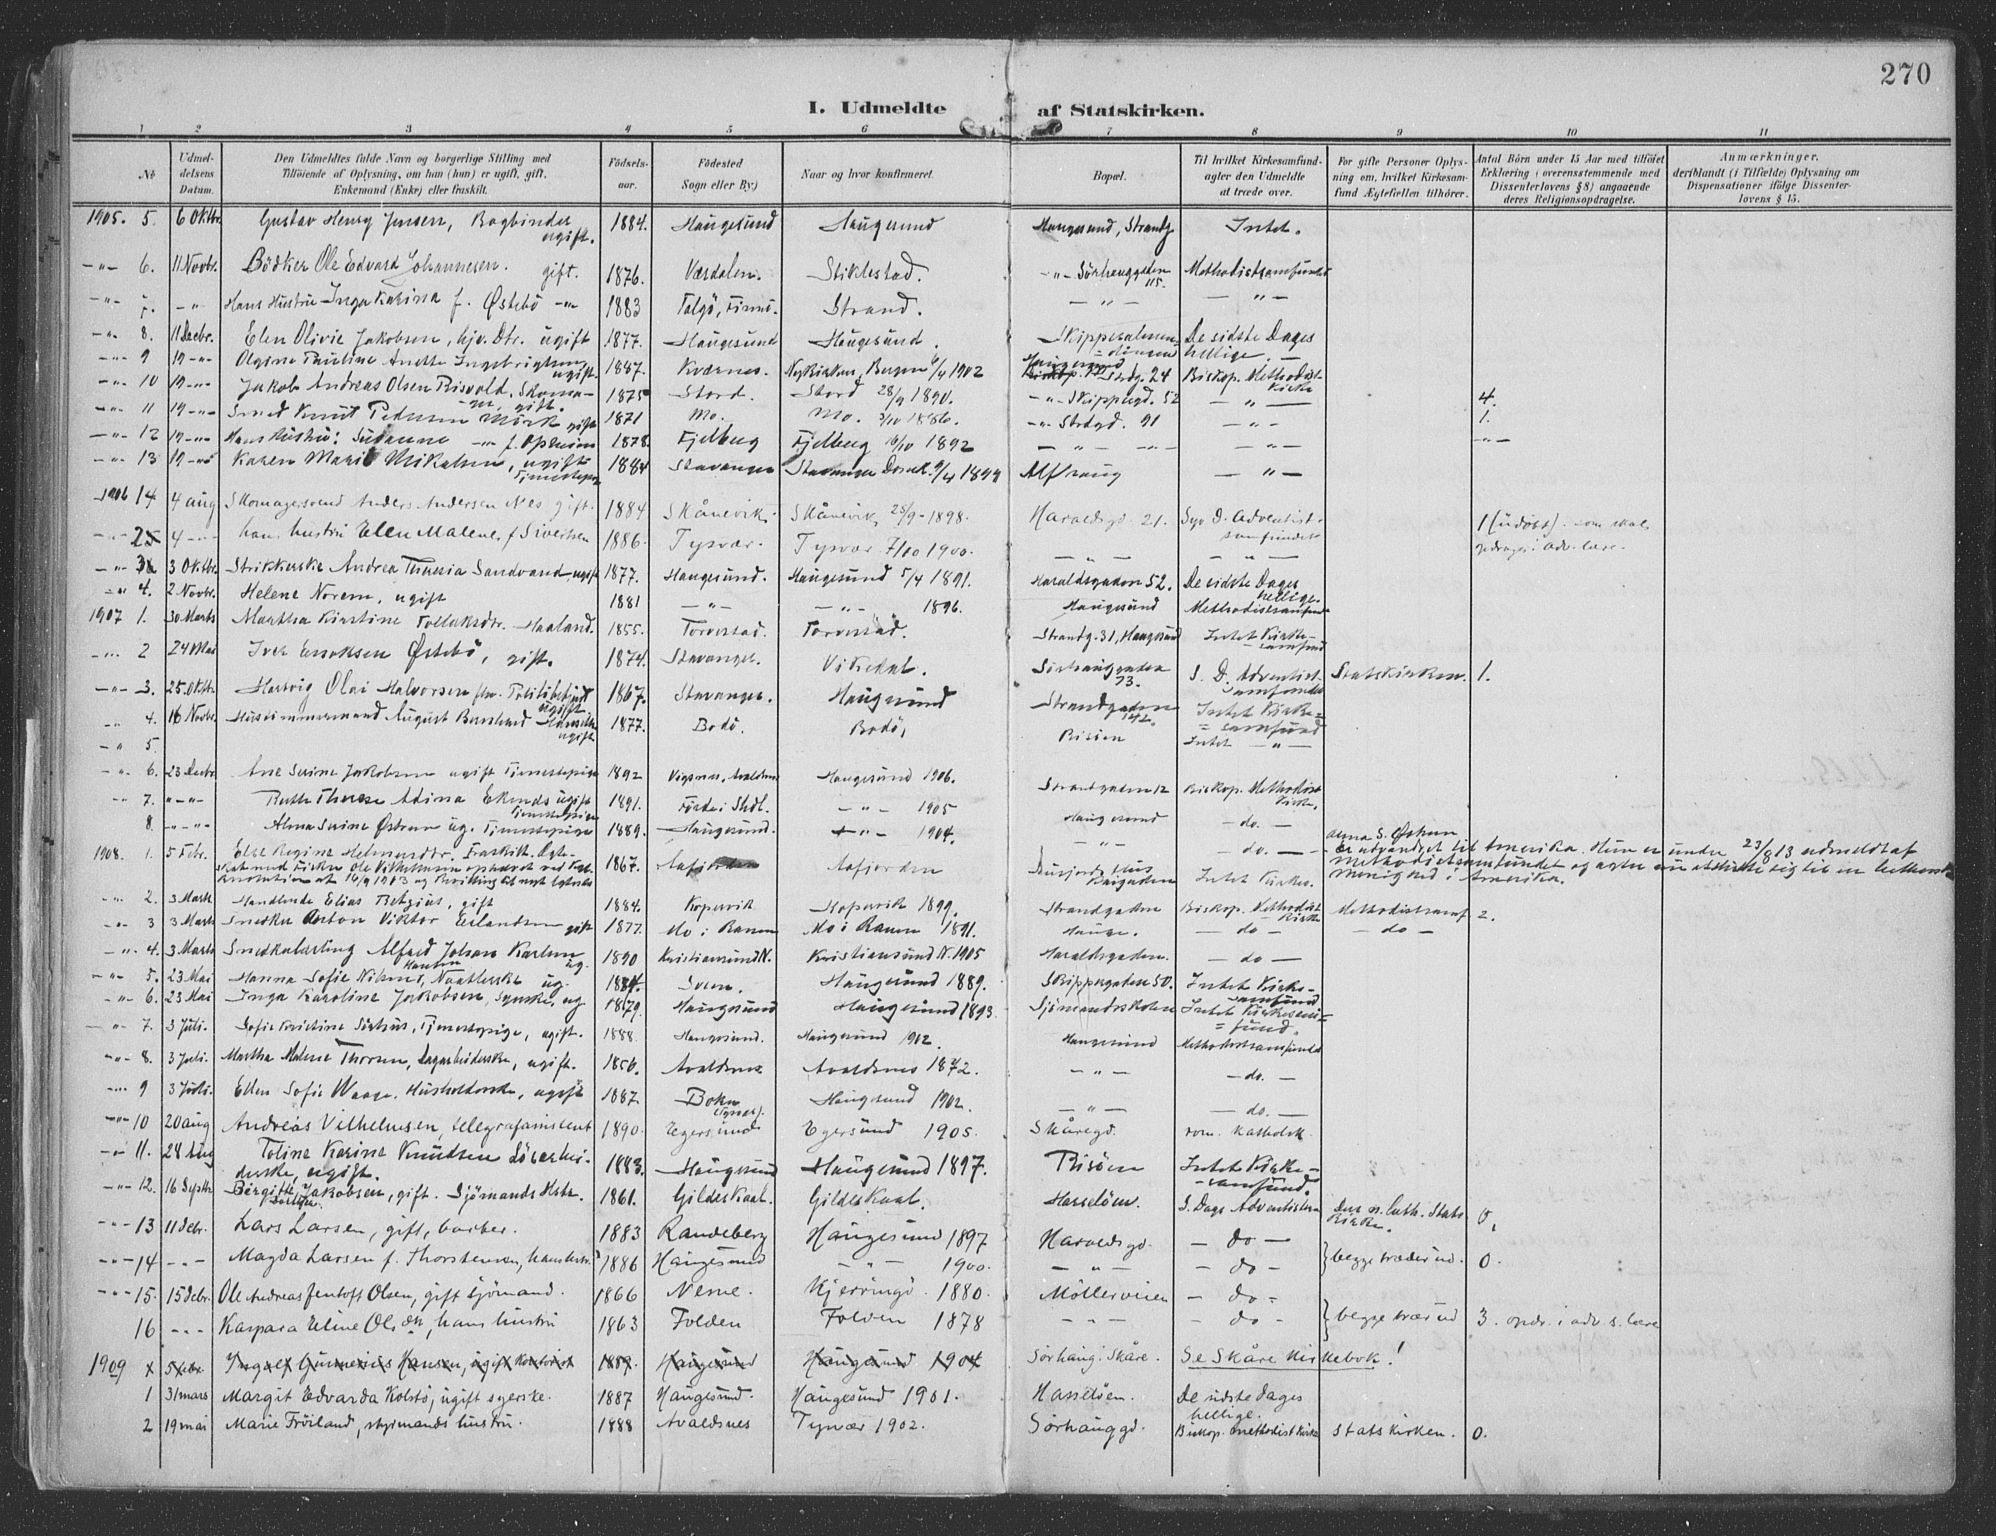 270
I. Udmeldte af Statskirken.
1 2 3 4 5 6 7 8 9 10 11
No
Udmel-
delsens
Datum.
Den Udmeldtes fulde Navn og borgerlige Stilling med
Tilföiende af Oplysning, om han (hun) er ugift, gift,
Enkemand (Enke) eller fraskilt.
Födsels-
aar.
Födested
Sogn eller By)
Naar og hvor konfirmeret.
Bopæl.
Til hvilket Kirkesamfund-
agter den Udmeldte
at træde over.
For gifte Personer Oplys-
ning om, hvilket Kirkesam-
fund Ægtefællen tilhörer.
Antal Börn under 15 Aar med tilföiet
Erklæring (overensstemmende med
Dissenterlovens § 8) angaaende
deres Religionsopdragelse.
Anmærkninger,
deriblandt (i Tilfælde) Oplysning om
Dispensationer ifölge Dissenter-
lovens § 15.
1905. 5. 6 Oktbr. Gustav Henry Jensen, Bogbinder ugift. 1884. Haugesund Haugesund Haugesund, Strandg Intet.
-"- 6. 11 Novbr. Bödker Ole Edvard Johannesen. gift. 1876. Værdalen. Stiklestad. -"- Sörhauggaden 115. Methodistsamfundet
-"- 7. -"- Hans Hustru Inga Karina f. Østebö -"- 1883 Talgö, Finnö. Strand. -"- -"-
-"- 8. 11 Decbr. Elen Olivie Jakobsen, hjv. Dtr. ugift 1877. Haugesund Haugesund. De sidste Dages hellige.
-"- 9 19 -"- Olgine Pauline Anette Ingebrigtsen ugift 1887. Kværnes. Nykirken, Bergen 6/4 1902 Haugesund Strdg. 24 Biskop. Methodist-kirke
-"- 10 19 -"- Jakob Andreas Olsen Risvold, Skomager, gift. 1875 Stord. Stord 28/9 1890. -"- Skippergd. 52 -"- 4.
-"- 11 19 -"- Smed Knut Pedersen Mörk gift 1871 Mo. Mo. 3/10 1886. -"- Strdgd. 91 -"- 1.
-"- 12 19 -"- Hans Hustru: Susanne -"- f. Opheim 1878. Fjelberg Fjelberg 16/10 1892 -"- -"- -"- -"-
-"- 13 19 -"- Karen Marie Mikalsen, ugift Tjenestepige 1884 Stavanger Stavanger Domk. 9/4 1899 Alfhaug -"-
1906 14 4 aug Skomagersvend Anders Andersen Nes gift. 1884 Skånevik. Skånevik 25/9-1898. Haraldsgd. 21. Syv D. Adventist-samfundet 1 (udöbt) som skal
-"- 2 4 -"- hans hustru Elen Malene f Sivertsen 1886. Tysvær. Tysvær 7/10 1900. -"- -"- opdrages i adv. lære.
-"- 3 3 Oktbr. Strikkerske Andrea Theresia Sandvand ugift 1877. Haugesund. Haugesund 5/4 1891. Haraldsgaden 52. De sidste Dages hellige.
-"- 4. 2 Novbr. Helene Norem, ugift 1881 -"- -"- 1896. Haugesund Methodistsamfun
1907 1. 30 Marts Martha Kirstine Tollaksdtr. Haaland. 1855. Torvestad. Torvestad. Strandg. 31, Haugesund Intet Kirke-samfund
-"- 2 24 Mai Iver Eriksen Østebö, gift. 1874. Stavanger. Vikedal. Sörhauggaden 73. S. D. Adventist-samfundet Statskirken. 1.
-"- 3. 25. Oktbr. Hartvig Olai Halvorsen fhv. Politibetjent ugift 1867. Stavanger. Haugesund Strandgaden 142. Intet Kirke-samfund
" 4. 16 Novbr. Hustømmermand August Bernhard ugift 1877. Bodö. Bodö, Risöen Intet -"-
-" 5.
-" 6. 23 Decbr Ane Serine Jakobsen ugift Tjenestepige 1892 Vigsnes, Avaldsnes Haugesund 1906. Strandgaden 12 Biskop. Methodist Kirke.
-" 7. "-"- Ruth Therese Adina Eknes ugift Tjenestepige 1891. Förde i Shdl. -"- 1905 Haugesund -do.-
8. -"-"- Alma Serine Østrem ug. Tjenestepige 1889. Haugesund. -"- 1904. -"- -do.-
Anna S. Østrem
er udvandret til Amerika. Hun er under 23/8 13 udmeldt af
Methodistsamfundet og agter
menighed i Amerika.
1908. 1. 5 Febr. Else Regine Helmersdtr. Fraskilt. 1867. Aafjorden Aafjorden Intet Kirkes.
" 2. 3 Marts Handlende Elias Betzius, gift 1884. Kopervik Kopervik 1899. Strandgaden Biskop. Methodist Kirke Methodistsamf 2.
-" 3 3 Marts Snedker Anton Viktor Erlandsen gift 1877. Mo i Ranen Mo i Ranen 1891. Hauge. -do- -do-
-"- 4. 3 Marts Snedkalærling Alfred Johan Karlsen ug. 1890 Kristiansund N. Kristiansund N. 1905 Haraldsgaden. -do-
-"- 5. 23 Mai Hanna Sofie Nilsen, ug. 1874. Sveen. Haugesund 1889. Skippergaden 50. Intet Kirke-samfund
-"- 6. 23 Mai Inga Karoline Jakobsen, Syerske, ug 1879. Haugesund Haugesund 1893. Sjömandsskolen Intet Kirkesam=fund.
-"- 7. 3 Juli. Sofie Kristine Sörhus, Tjenestepige, ugift. 1888. Haugesund. Haugesund 1902. Haugesund Methodistsamfundet
-"- 8. 3 Juli. Martha Malene Thorsen, Dagarbeiderske, ugift. 1856. Avaldsnes Avaldsnes 1872. -"- -do.-
-"- 9 3 Juli. Ellen Sofie Waage. Husholderske, ugift 1887. Bokn (Tysvær). Haugesund 1902. -"- -do.-
-"- 10 20 aug Andreas Vilhelmsen, telegrafassistent 1890. Egersund Egersund 1905. Skåregd. rom. katholsk.
-"- 11. 28 Aug Toline Karine Knudsen Lösarbei-derske, ugift. 1883. Haugesund Haugesund 1897. Risöen Intet Kirke-samfund.
-"- 12. 16 Septbr Bergitte Jakobsen, gift. Sjömands Hstr. 1861. Gildeskaal. Gildeskaal. Hasselöen. S. Dags Adventisten Den n. luth. Stats Kirke. 0.
-"- 13 11 debr. Lars Larsen, gift, barber. 1883 Randeberg Haugesund 1897 Haraldsgd. -do-
-"- 14 -"- Magda Larsen f. Thorstensen, hans hustr. 1886 Haugesund -"- 1900. -"- -do- } begge træder ud. 0.
-"- 15. 15 debr. Ole Andreas Jentoft Olsen, gift sjömand. 1866 Nesne. Kjerringö. 1880. Möllerveien -do-
16 -"- Kaspara Eline Olsen, hans hustru 1863 Folden Folden 1878 -"- -do- } begge træder ud 3. opdr. i adv. s. lære
1909 x 5 febr. Ingolf Gunnerius Hansen, ugift kontorist 1889. Haugesund Haugesund 1904 Sörhaug. Skåre. Se Skåre kirkebok!
1 31 mars Margit Edvarda Kolstö, ugift syerske. 1887 Haugesund. Haugesund 1901. Hasselöen. De sidste dages hellige.
2 19 mai Marie Fröiland, styrmands hustru. 1888 Avaldsnes Tysvær 1902. Sörhauggd. Biskop. methodistkirke statskirken. 0.